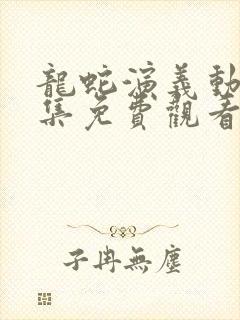 龍蛇演義動
集免費觀看
子冉無塵